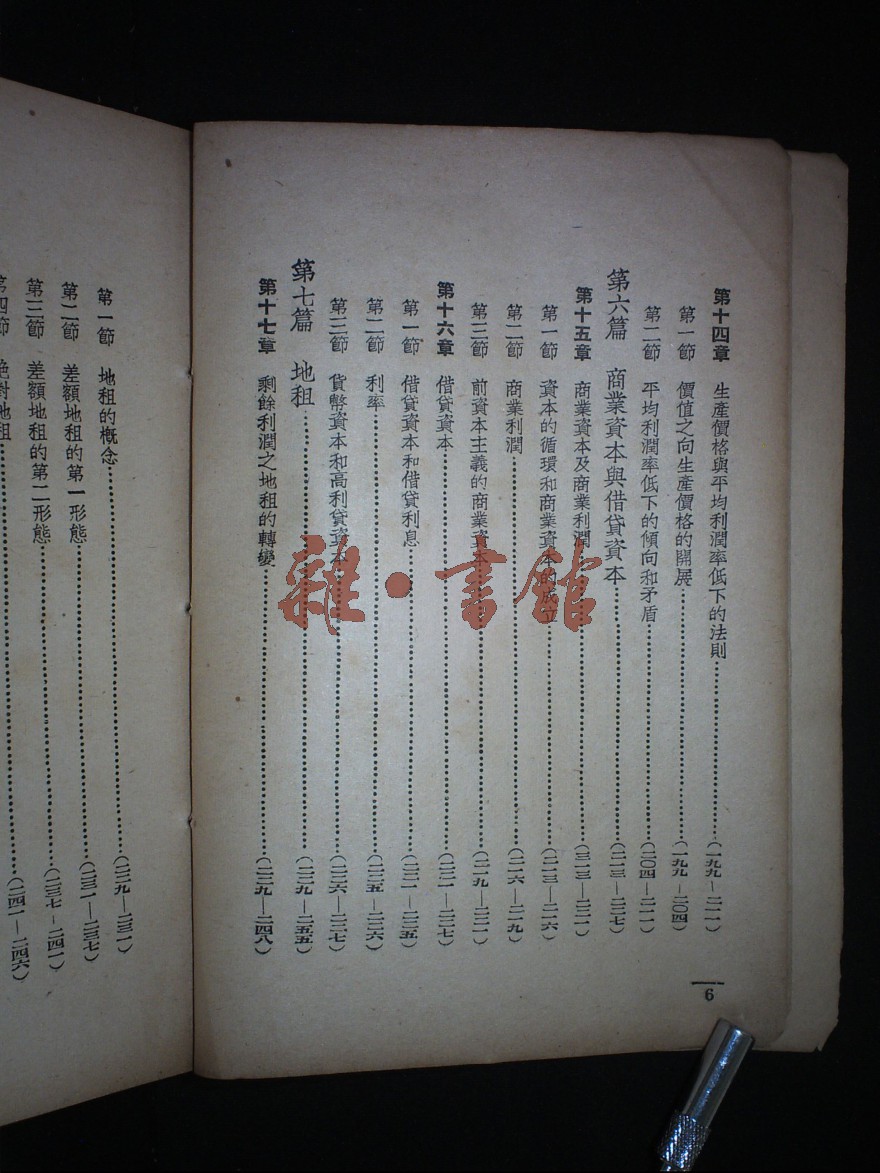 第十四章 生產價格與平均利潤率低下的法則……(一九九-二一一)
第一節 價值之向生產價格的開展……(一九九-二〇四)
第二節 平均利潤率低下的傾向和矛盾……(二〇四-二一一)
第六篇 商業資本與借貸資本……(二一三-二二七)
第十五章 商業資本及商業利潤……(二一三-二二一)
第一節 資本的循環和商業資本的成立……(二一三-二一六)
第二節 商業利潤……(二一六-二一九)
第三節 前資本主義的商業資本……(二一九-二二一)
第十六章 借貸資本……(二二一-二二七)
第一節 借貸資本和借貸利息……(二二一-二二五)
第二節 利率……(二二五-二二六)
第三節 貨幣資本和高利貸資本……(二二六-二二七)
第七篇 地租……(二二九-二五五)
第十七章 剩餘利潤之地租的轉變……(二二九-二四八)
6
第一節 地租的概念……(二二九-二三一)
第二節 差額地租的第一形態……(二三一-二三七)
第三節 差額地租的第二形態……(二三七-二四一)
第四節 絶對地租……(二四一-二四六)
雜·書館